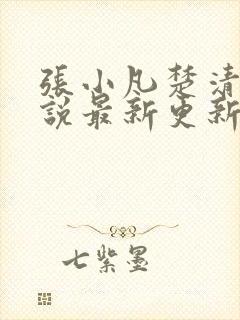 張小凡楚清
說最新更新
七紫墨